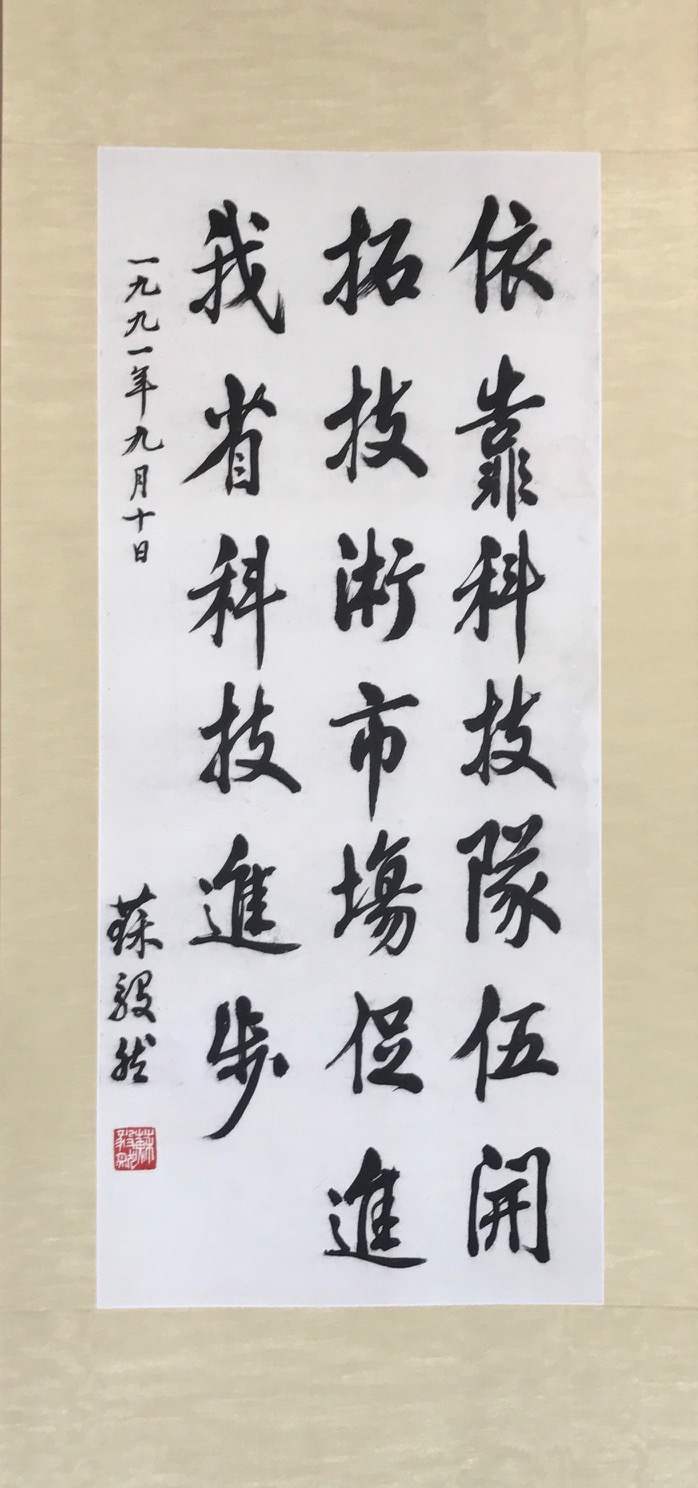 依靠科技隊伍開
拓技術市場促進
我省科技進步
一九九一年九月十日
蘇毅然
蘇毅然